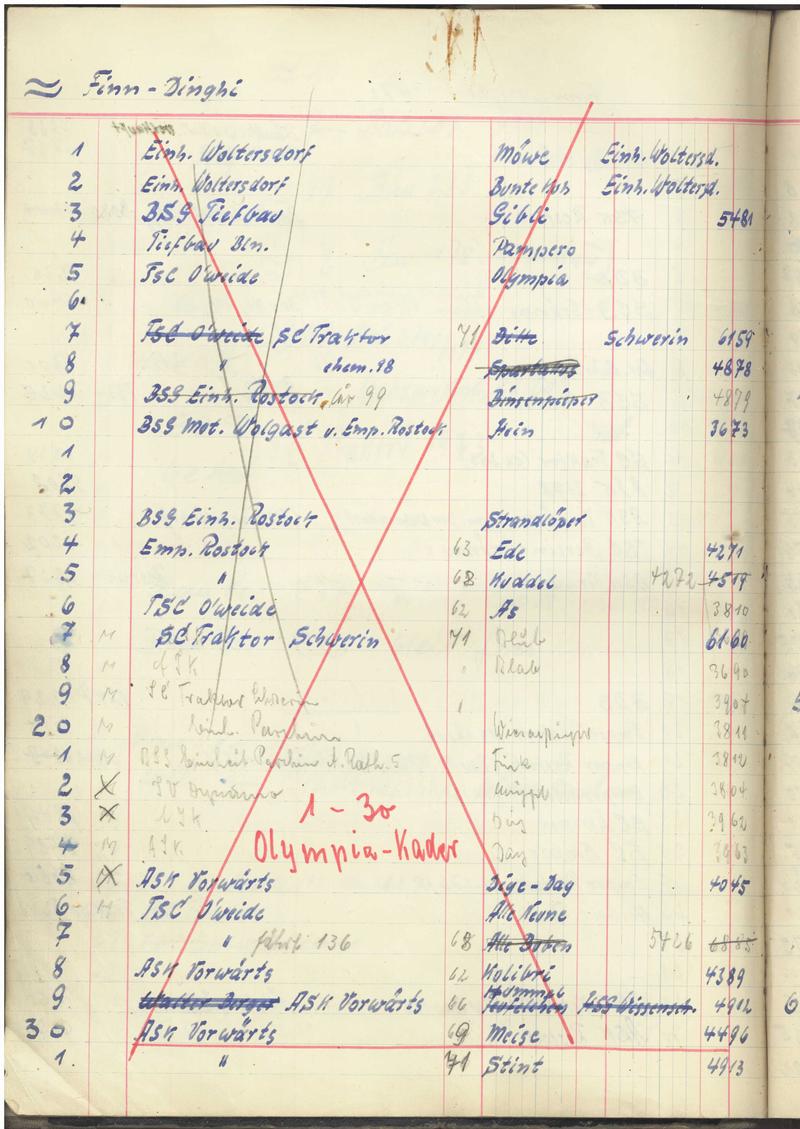 Finn-Dinghi
1 Einh. Woltersdorf Möwe Einh. Woltersd.
2 Einh. Woltersdorf Bunte Kuh Einh. Woltersd.
3 BSG Tiefbau Gibli 5481
4 Tiefbau Bln. Pampero
5 TSC O'weide Olympia
6
7 TSC O'weide SC Traktor 71 Ditte Schwerin 6159
8 " ehem. 98 Spartakus 4878
9 BSG Einh. Rostock, für 99 Binsenpieper 4879
10 BSG Mot. Wolgast v. Emp. Rostock Hein 3673
1
2
3 BSG Einh. Rostock Strandlöper
4 Emp. Rostock 63 Ede 4271
5 " 68 Kuddel 4272 4519
6 TSC O'weide 62 As 3810
7 M SC Traktor Schwerin 71 6160
8 M ASK " 3690
9 M SC Traktor Schwerin " 3907
20 M Einh. Parchim 3811
1 M BSG Einheit Parchim A. Rath. 5 Fink 3812
2 SV Dynamo 3804
3 ASK 3962
4 M ASK 3963
1-30
Olympia-Kader
5 ASK Vorwärts Dige-Dag 4045
6 M TSC O'weide Alle Neune
7 " fährt 136 68 5426 6885
8 ASK Vorwärts 62 Kolibri 4389
9 Walter Berger ASK Vorwärts 66 Hummel BSG Wissensch. 4912
30 ASK Vorwärts 69 Meise 4496
1 " 71 Stint 4913